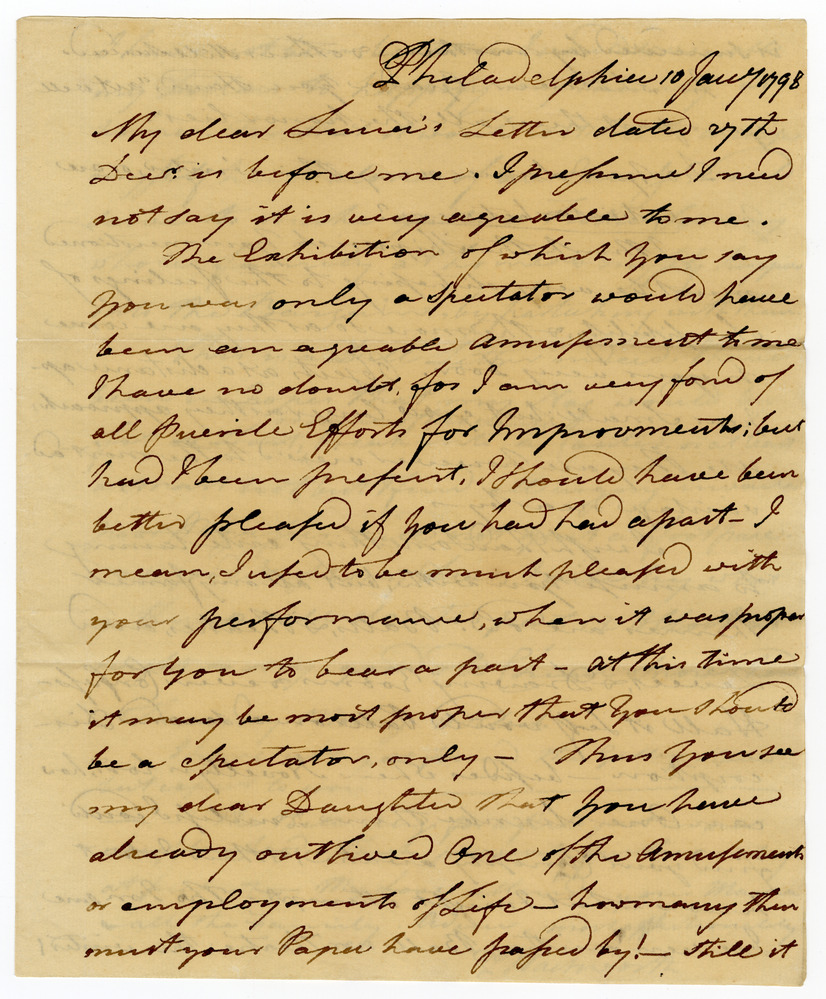 Philadelphia 10 Jany 1798
My dear Lucia's Letter dated 27th
Decr. is before me. I presume I need
not say it is very agreable to me.
The Exhibition of which you say
you was only a spectator would have
been an agreable Amusement to me
I have no doubt, for I am very fond of
all Puerile Efforts for Improvments; but
had I been present, I should have been
better pleased if you had had a part – I
mean, I used to be much pleased with
your performance, when it was proper
for you to bear a part – at this time
it may be most proper that you should
be a spectator, only – Thus you see
my dear Daughter that you have
already outlived One of the Amusements
or employments of Life – how many then
must your Papa have passed by! – still it